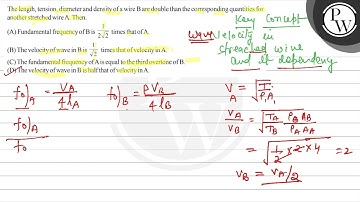 The length, tension, diameter and density of a wire B are double than the corresponding quantities for
another stretched wire A. Then.
(A) Fundamental frequency of B is 1/(2√2) times that of A.
(B) The velocity of wave in B is 1/√2 times that of velocity in A.
(C) The fundamental frequency of A is equal to the third overtone of B.
(D) The velocity of wave in B is half that of velocity in A.
Key Concept
wave velocity in
streched wire
and it dependency
PW
f₀)A = VA/4lA f₀)B = PVB/4lB
f₀)A
f₀
VA = √(T/P₁A₁)
VA/VB = √(TA/TB PBAB/PAAA)
= √(1/2 × 2 × 4) = 2
VB = VA/2